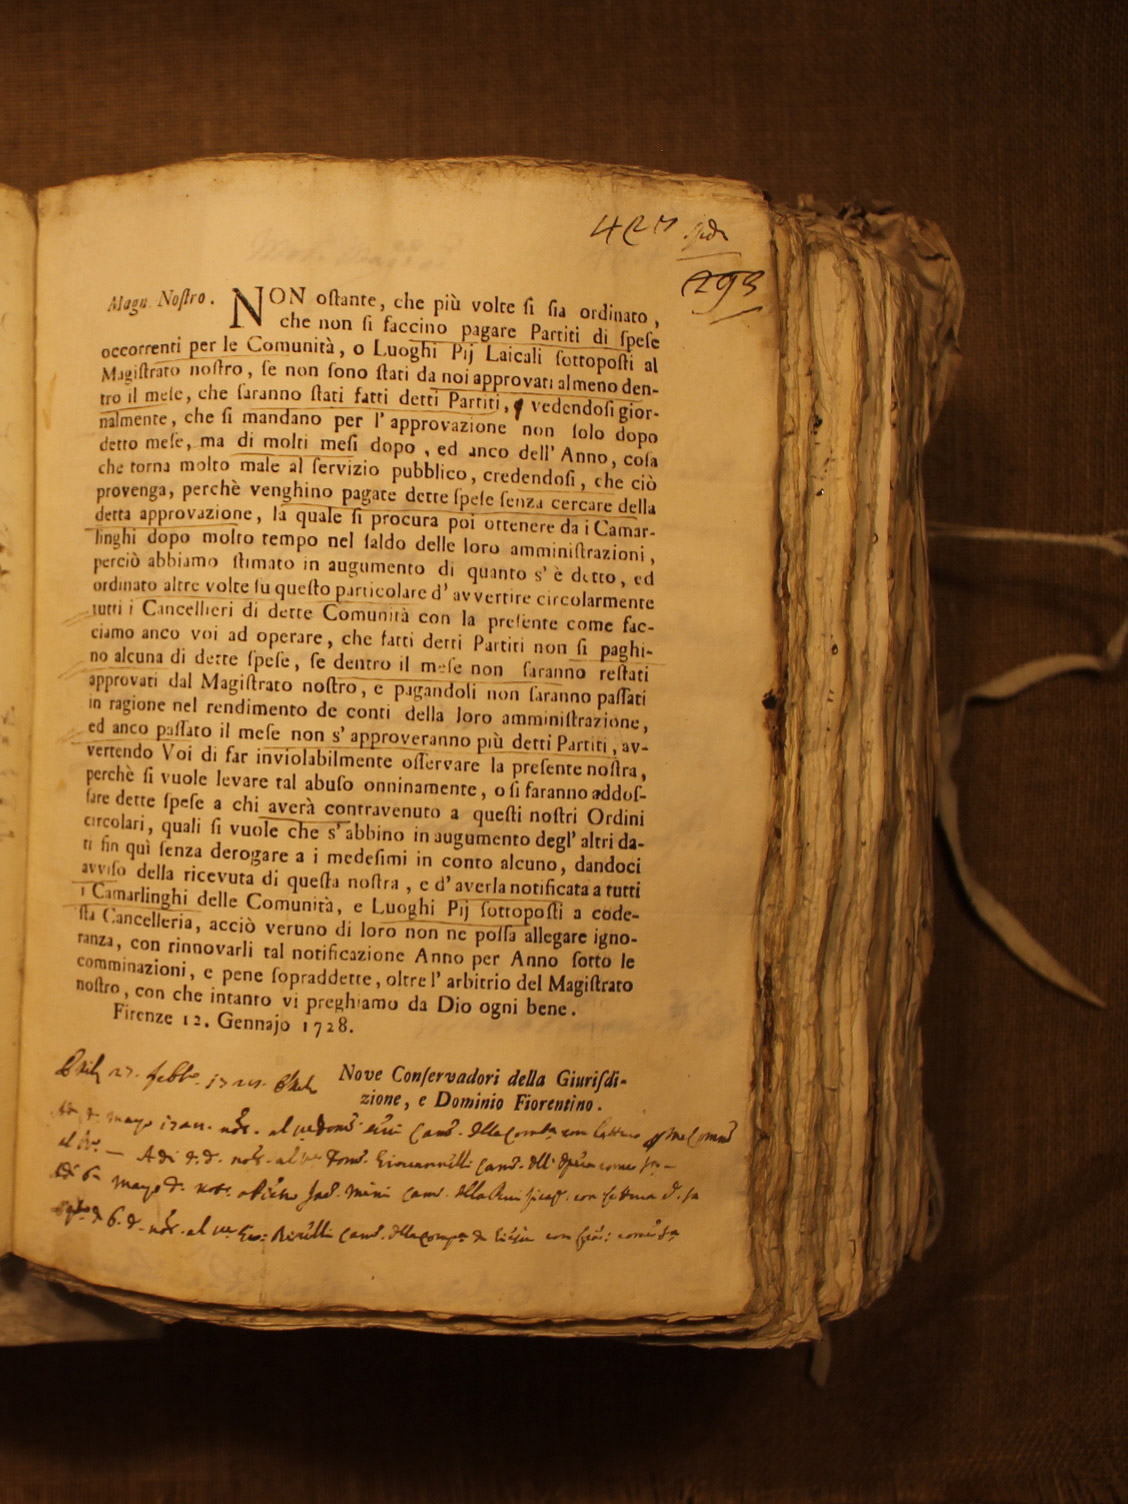 293
Magn. Nostro. NON ostante, che più volte si sia ordinato,
che non si faccino pagare Partiti di spese
occorrenti per le Comunità, o Luoghi Pij Laicali sottoposti al
Magistrato nostro, se non sono stati da noi approvati almeno den-
tro il mese, che saranno stati fatti detti Partiti, vedendosi gior-
nalmente, che si mandano per l' approvazione non solo dopo
detto mese, ma di molti mesi dopo, ed anco dell' Anno, cosa
che torna molto male al servizio pubblico, credendosi, che ciò
provenga, perchè venghino pagate dette spese senza cercare della
detta approvazione, la quale si procura poi ottenere da i Camar-
linghi dopo molto tempo nel saldo delle loro amministrazioni,
perciò abbiamo stimato in augumento di quanto s' è detto, ed
ordinato altre volte su questo particolare d' avvertire circolarmente
tutti i Cancellieri di dette Comunità con la presente come fac-
ciamo anco voi ad operare, che fatti detti Partiti non si paghi-
no alcuna di dette spese, se dentro il mese non saranno restati
approvati dal Magistrato nostro, e pagandoli non saranno passati
in ragione nel rendimento de conti della loro amministrazione,
ed anco passato il mese non s' approveranno più detti Partiti, av-
vertendo Voi di far inviolabilmente osservare la presente nostra,
perchè si vuole levare tal abuso onninamente, o si faranno addos-
sare dette spese a chi averà contravenuto a questi nostri Ordini
circolari, quali si vuole che s' abbino in augumento degl' altri da-
ti fin quì senza derogare a i medesimi in conto alcuno, dandoci
avviso della ricevuta di questa nostra, e d' averla notificata a tutti
i Camarlinghi delle Comunità, e Luoghi Pij sottoposti a code-
sta Cancelleria, acciò veruno di loro non ne possa allegare igno-
ranza, con rinnovarli tal notificazione Anno per Anno sotto le
comminazioni, e pene sopraddette, oltre l' arbitrio del Magistrato
nostro, con che intanto vi preghiamo da Dio ogni bene.
Firenze 12. Gennajo 1728.
Nove Conservadori della Giurisdi-
zione, e Dominio Fiorentino.